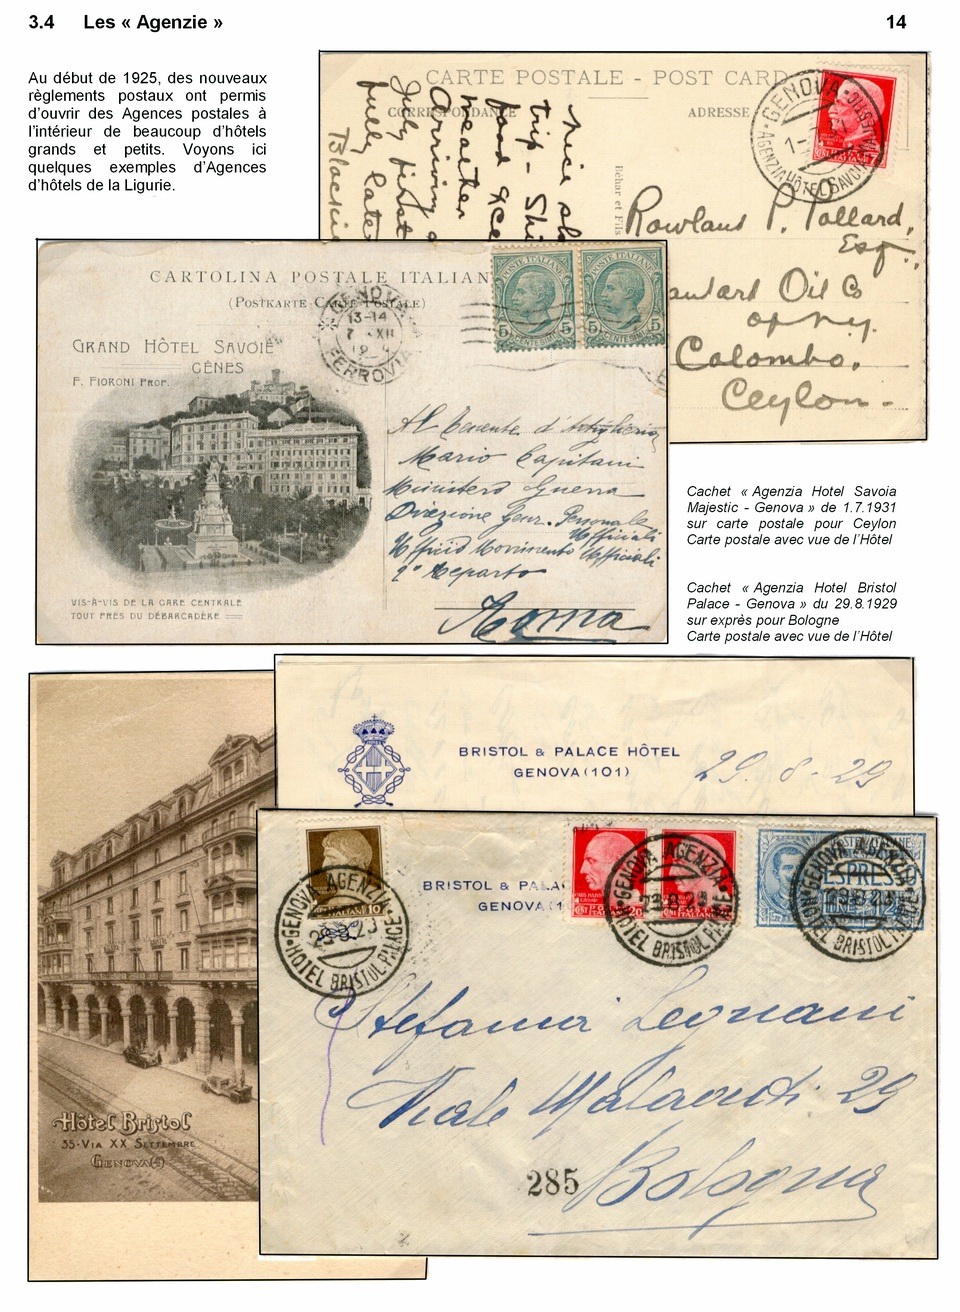 3.4 Les « Agenzie » 14
Au début de 1925, des nouveaux
règlements postaux ont permis
d'ouvrir des Agences postales à
l'intérieur de beaucoup d'hôtels
grands et petits. Voyons ici
quelques exemples d'Agences
d'hôtels de la Ligurie.
CARTE POSTALE - POST CARD
CORRESPONDANCE ADRESSE
Nice
trip -
food
weather
Arriving
July first
fully late
Béhar et Fils
GENOVA
AGENZIA HOTEL SAVOIA
1-
Rowland P. Tollard,
Esq.
Oil Co
of N.Y.
Colombo,
Ceylon -
CARTOLINA POSTALE ITALIAN
(POSTKARTE CARTE POSTALE)
GENOVA
13-14
7 XII
FERROVIA
POSTE ITALIANE
5 CENTESIMI 5
POSTE ITALIANE
5 CENTESIMI 5
GRAND HÔTEL SAVOIE
GÊNES
F. FIORONI PROP.
Al Tenente d'Artiglieria
Mario Capitani
Ministero Guerra
Direzione Gen. Personale
Ufficiali
Ufficio Movimento Ufficiali
2° Reparto
Roma
VIS-À-VIS DE LA GARE CENTRALE
TOUT PRÈS DU DÉBARCADÈRE
Cachet « Agenzia Hotel Savoia
Majestic - Genova » de 1.7.1931
sur carte postale pour Ceylon
Carte postale avec vue de l'Hôtel
Cachet « Agenzia Hotel Bristol
Palace - Genova » du 29.8.1929
sur exprès pour Bologne
Carte postale avec vue de l'Hôtel
BRISTOL & PALACE HÔTEL
GENOVA (101)
29-8-29
BRISTOL & PALAC
GENOVA (1
GENOVA AGENZIA
HOTEL BRISTOL PALACE
ITALIANE 10
GENOVA AGENZIA
HOTEL BRISTOL PALACE
20
GENOVA AGENZIA
HOTEL BRISTOL PALACE
ESPRESSO
Stefania Legnani
Viale
29
Bologna
285
Hôtel Bristol
35-VIA XX SETTEMBRE
GENOVA